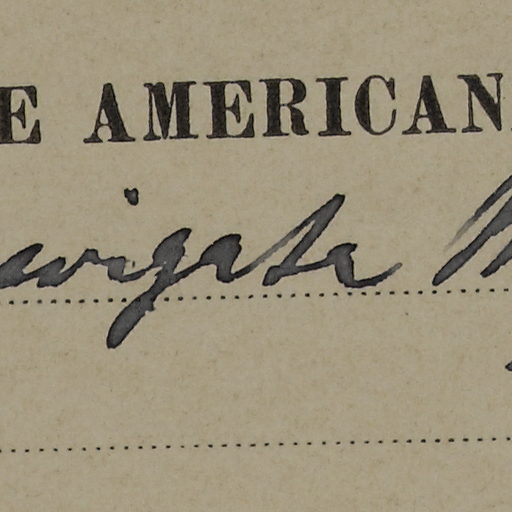 E AMERICAN
avigate